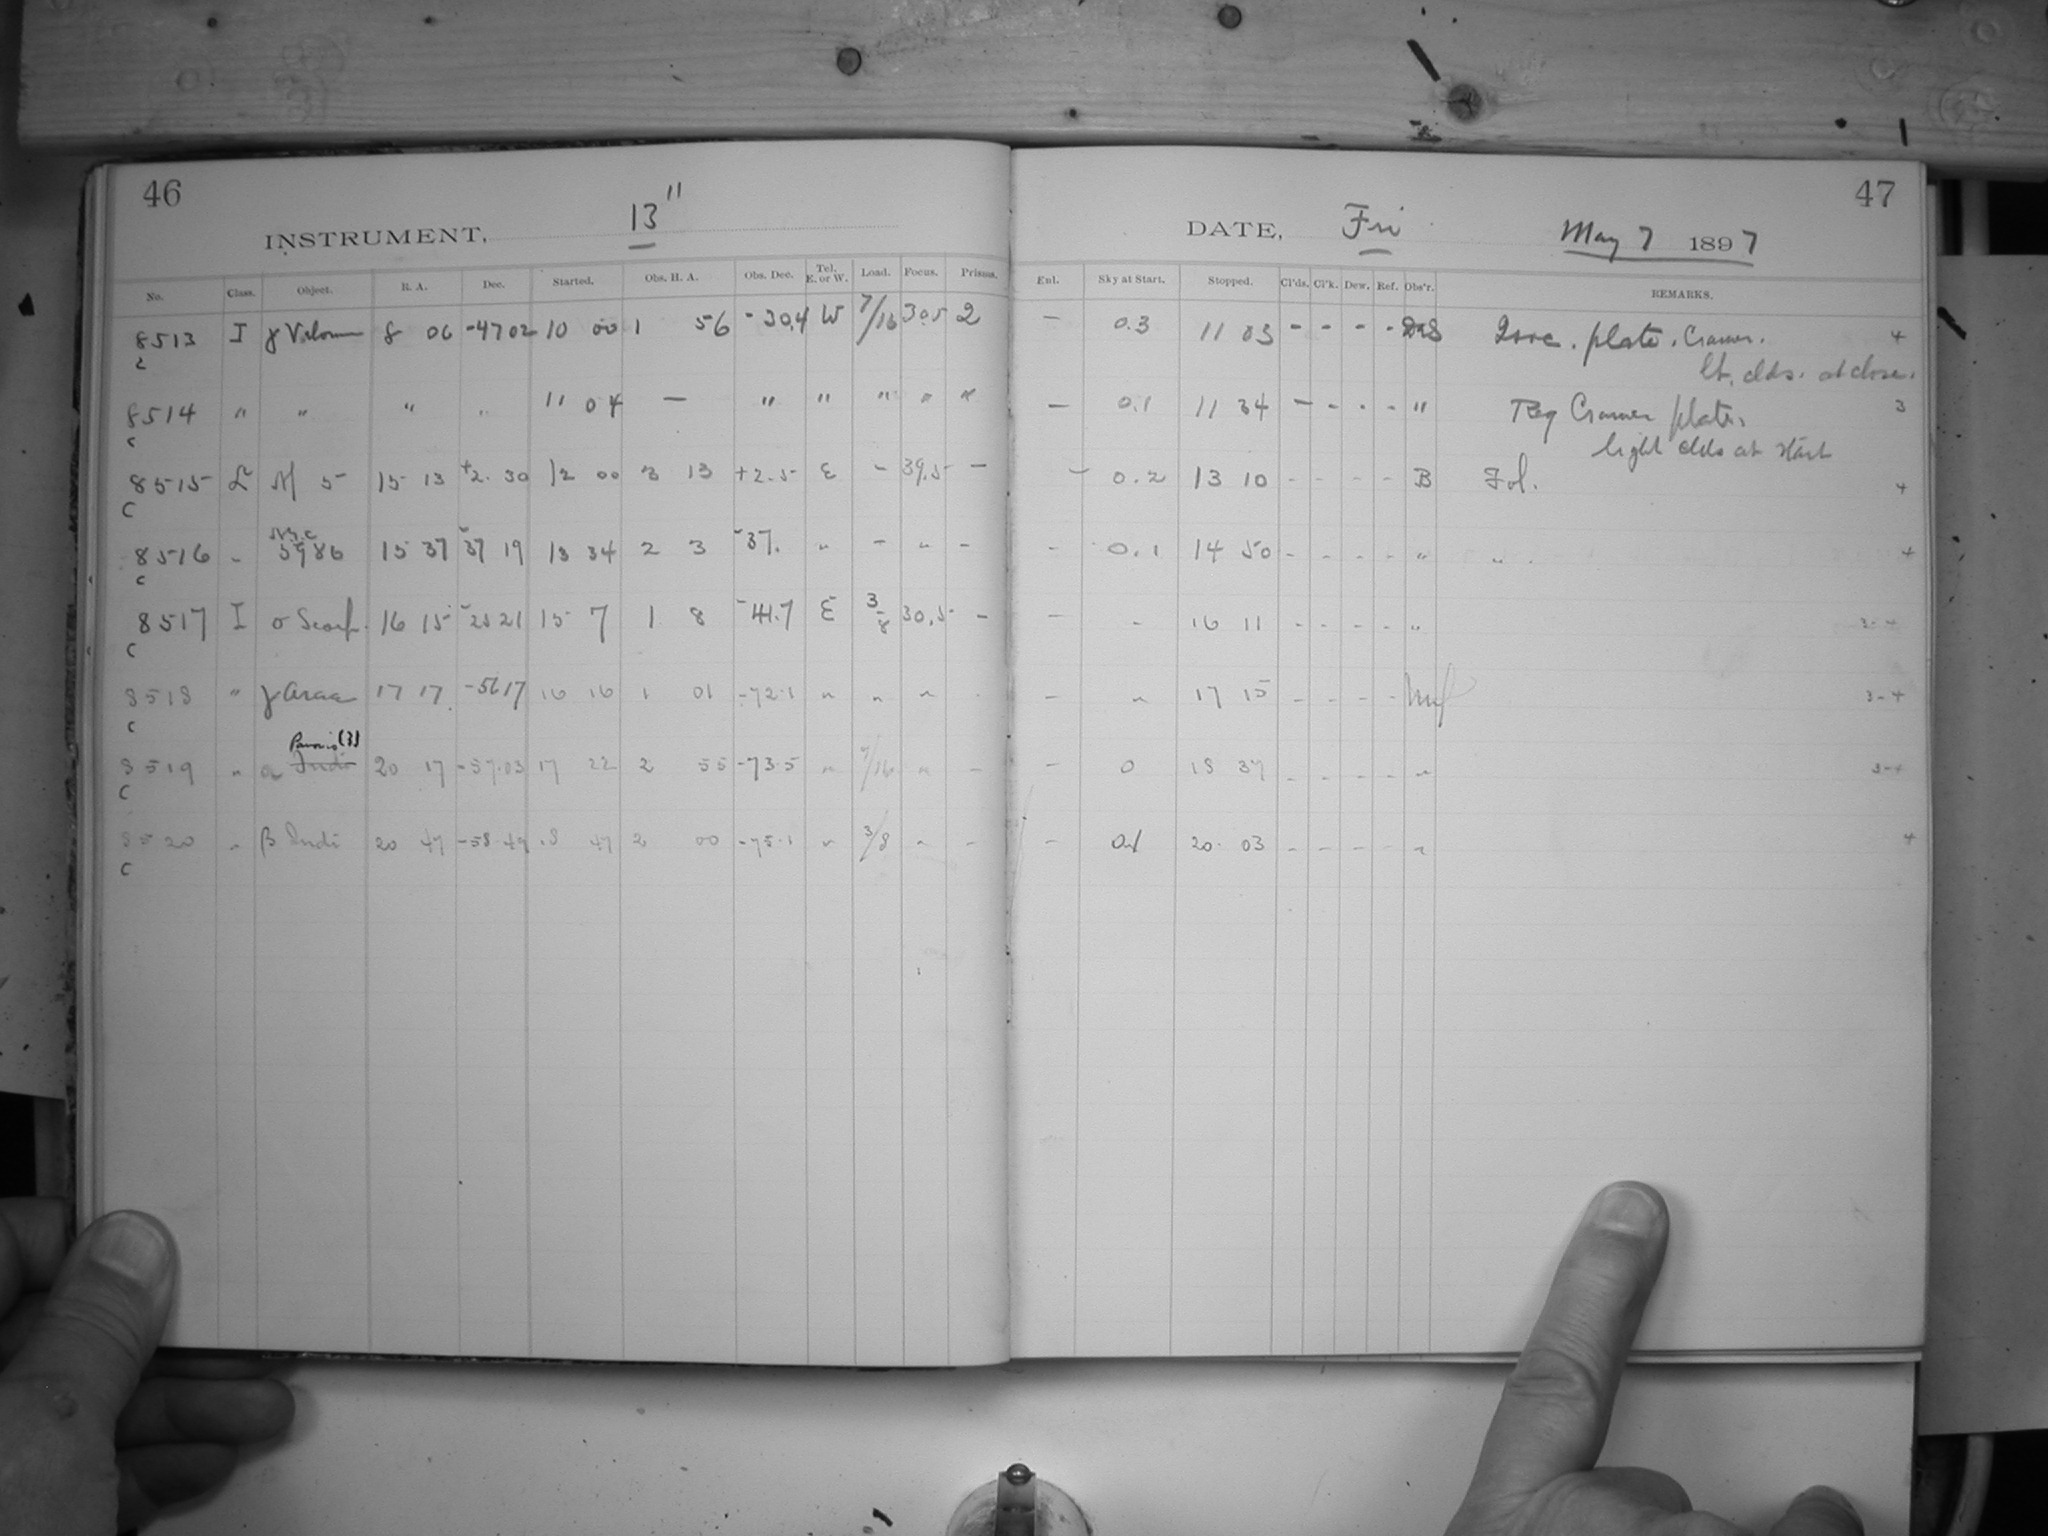 46
INSTRUMENT, 13"
No. Class. Object. R. A. Dec. Started. Obs. H. A. Obs. Dec. Tel. E. or W. Load. Focus. Prisms.
8513 I γ Velorum 8 06 -47 02 10 00 1 56 -30.4 W 7/16 30.5 2
c
8514 " " " " 11 04 — " " " " "
c
8515 L M 5 15 13 +2. 30 12 00 3 13 +2.5 E - 39.5 -
C
N.G.C
8516 " 5986 15 37 -37 19 13 34 2 3 -37. " - " -
c
8517 I σ Scorp. 16 15 -25 21 15 7 1 8 -41.7 E 3/8 30.5 -
C
8518 " γ Arae 17 17 -56 17 16 16 1 01 -72.1 " " "
c
Pavonis (?)
8519 " α Indi 20 17 -57.03 17 22 2 55 -73.5 " 7/16 " -
C
8520 " β Indi 20 47 -58 49 18 47 2 00 -75.1 " 3/8 " -
C
47
DATE, Fri May 7 1897
Enl. Sky at Start. Stopped. Cl'ds. Cl'k. Dew. Ref. Obs'r. REMARKS.
— 0.3 11 03 - - - - Isoc. plate. Cramer. 4
lt. clds. at close.
— 0.1 11 34 - - - - " Reg Cramer plate. 3
light clds at start
- 0.2 13 10 - - - - B Fol. 4
- 0.1 14 50 - - - - " " 4
- - 16 11 - - - - " 3-4
- " 17 15 - - - - 3-4
- 0 18 37 - - - - " 3-4
- 0.1 20 03 - - - - " 4